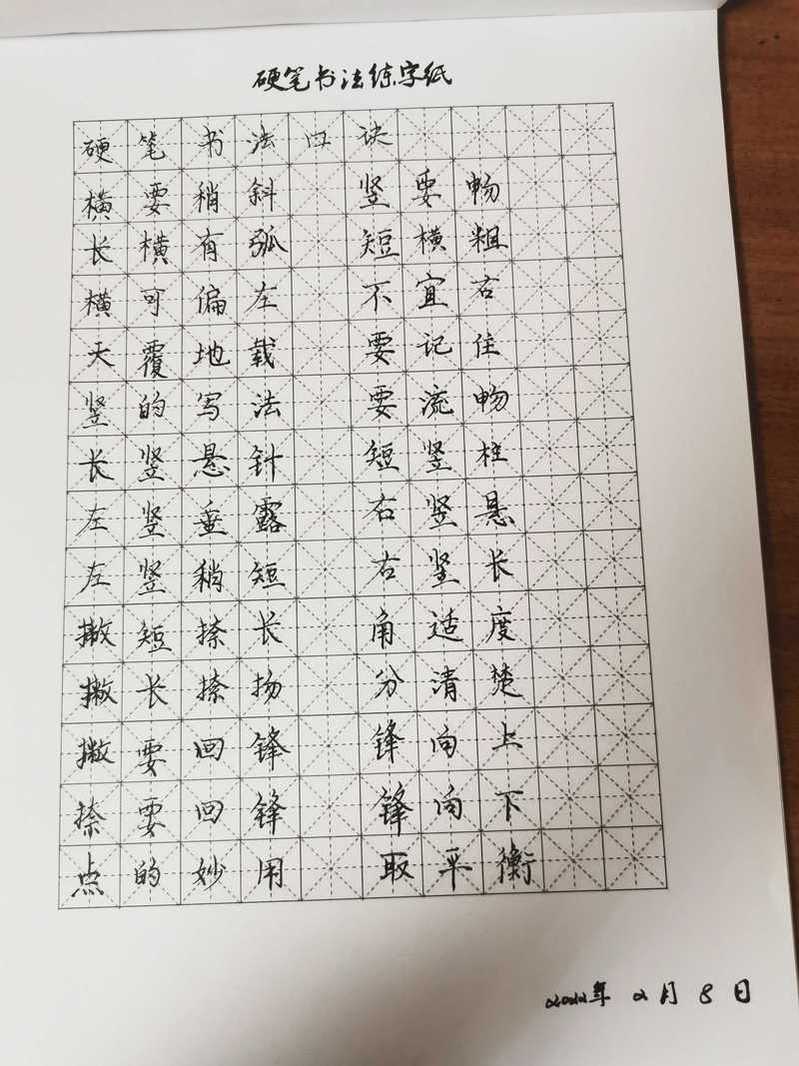 硬笔书法练字纸
硬笔书法口诀
横要稍斜 竖要畅
长横有弧 短横粗
横可偏左 不宜右
天覆地载 要记住
竖的写法 要流畅
长竖悬针 短竖柱
左竖垂露 右竖悬
左竖稍短 右竖长
撇短捺长 角适度
撇长捺扬 分清楚
撇要回锋 锋向上
捺要回锋 锋向下
点的妙用 取平衡
2022年 2月 8日